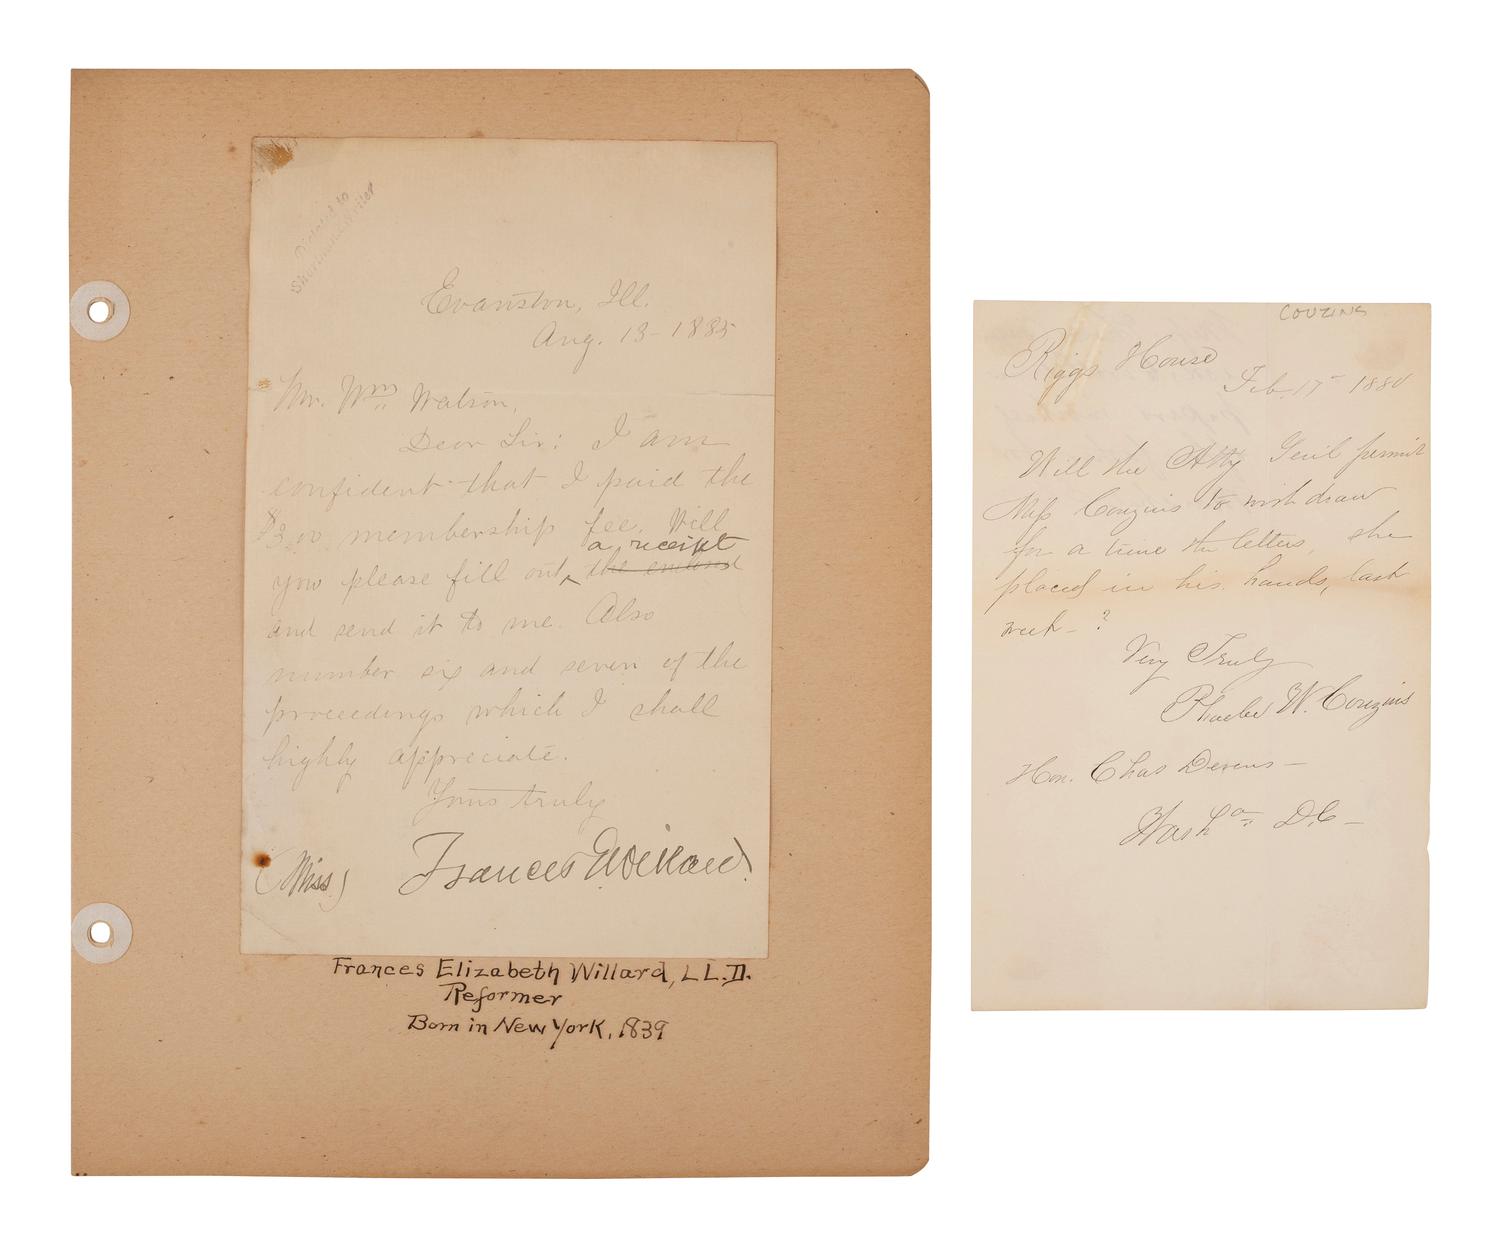 Dictated to
Shorthand Writer
Evanston, Ill.
Aug. 13-1885
Mr. Wm Watson,
Dear Sir: I am
confident that I paid the
$3.00 membership fee. Will
a receipt
you please fill out ‸ the enclosed
and send it to me. Also
number six and seven of the
proceedings which I shall
highly appreciate.
Yours truly
(Miss) Frances E. Willard.
Frances Elizabeth Willard, LL.D.
Reformer
Born in New York, 1839
COUZINS
Riggs House
Feb. 17- 1880
Will the Atty Genl permit
Miss Couzins to withdraw
for a time the letters, she
placed in his hands, last
week - ?
Very Truly
Phoebe W. Couzins
Hon. Chas Devens -
Washn D.C -